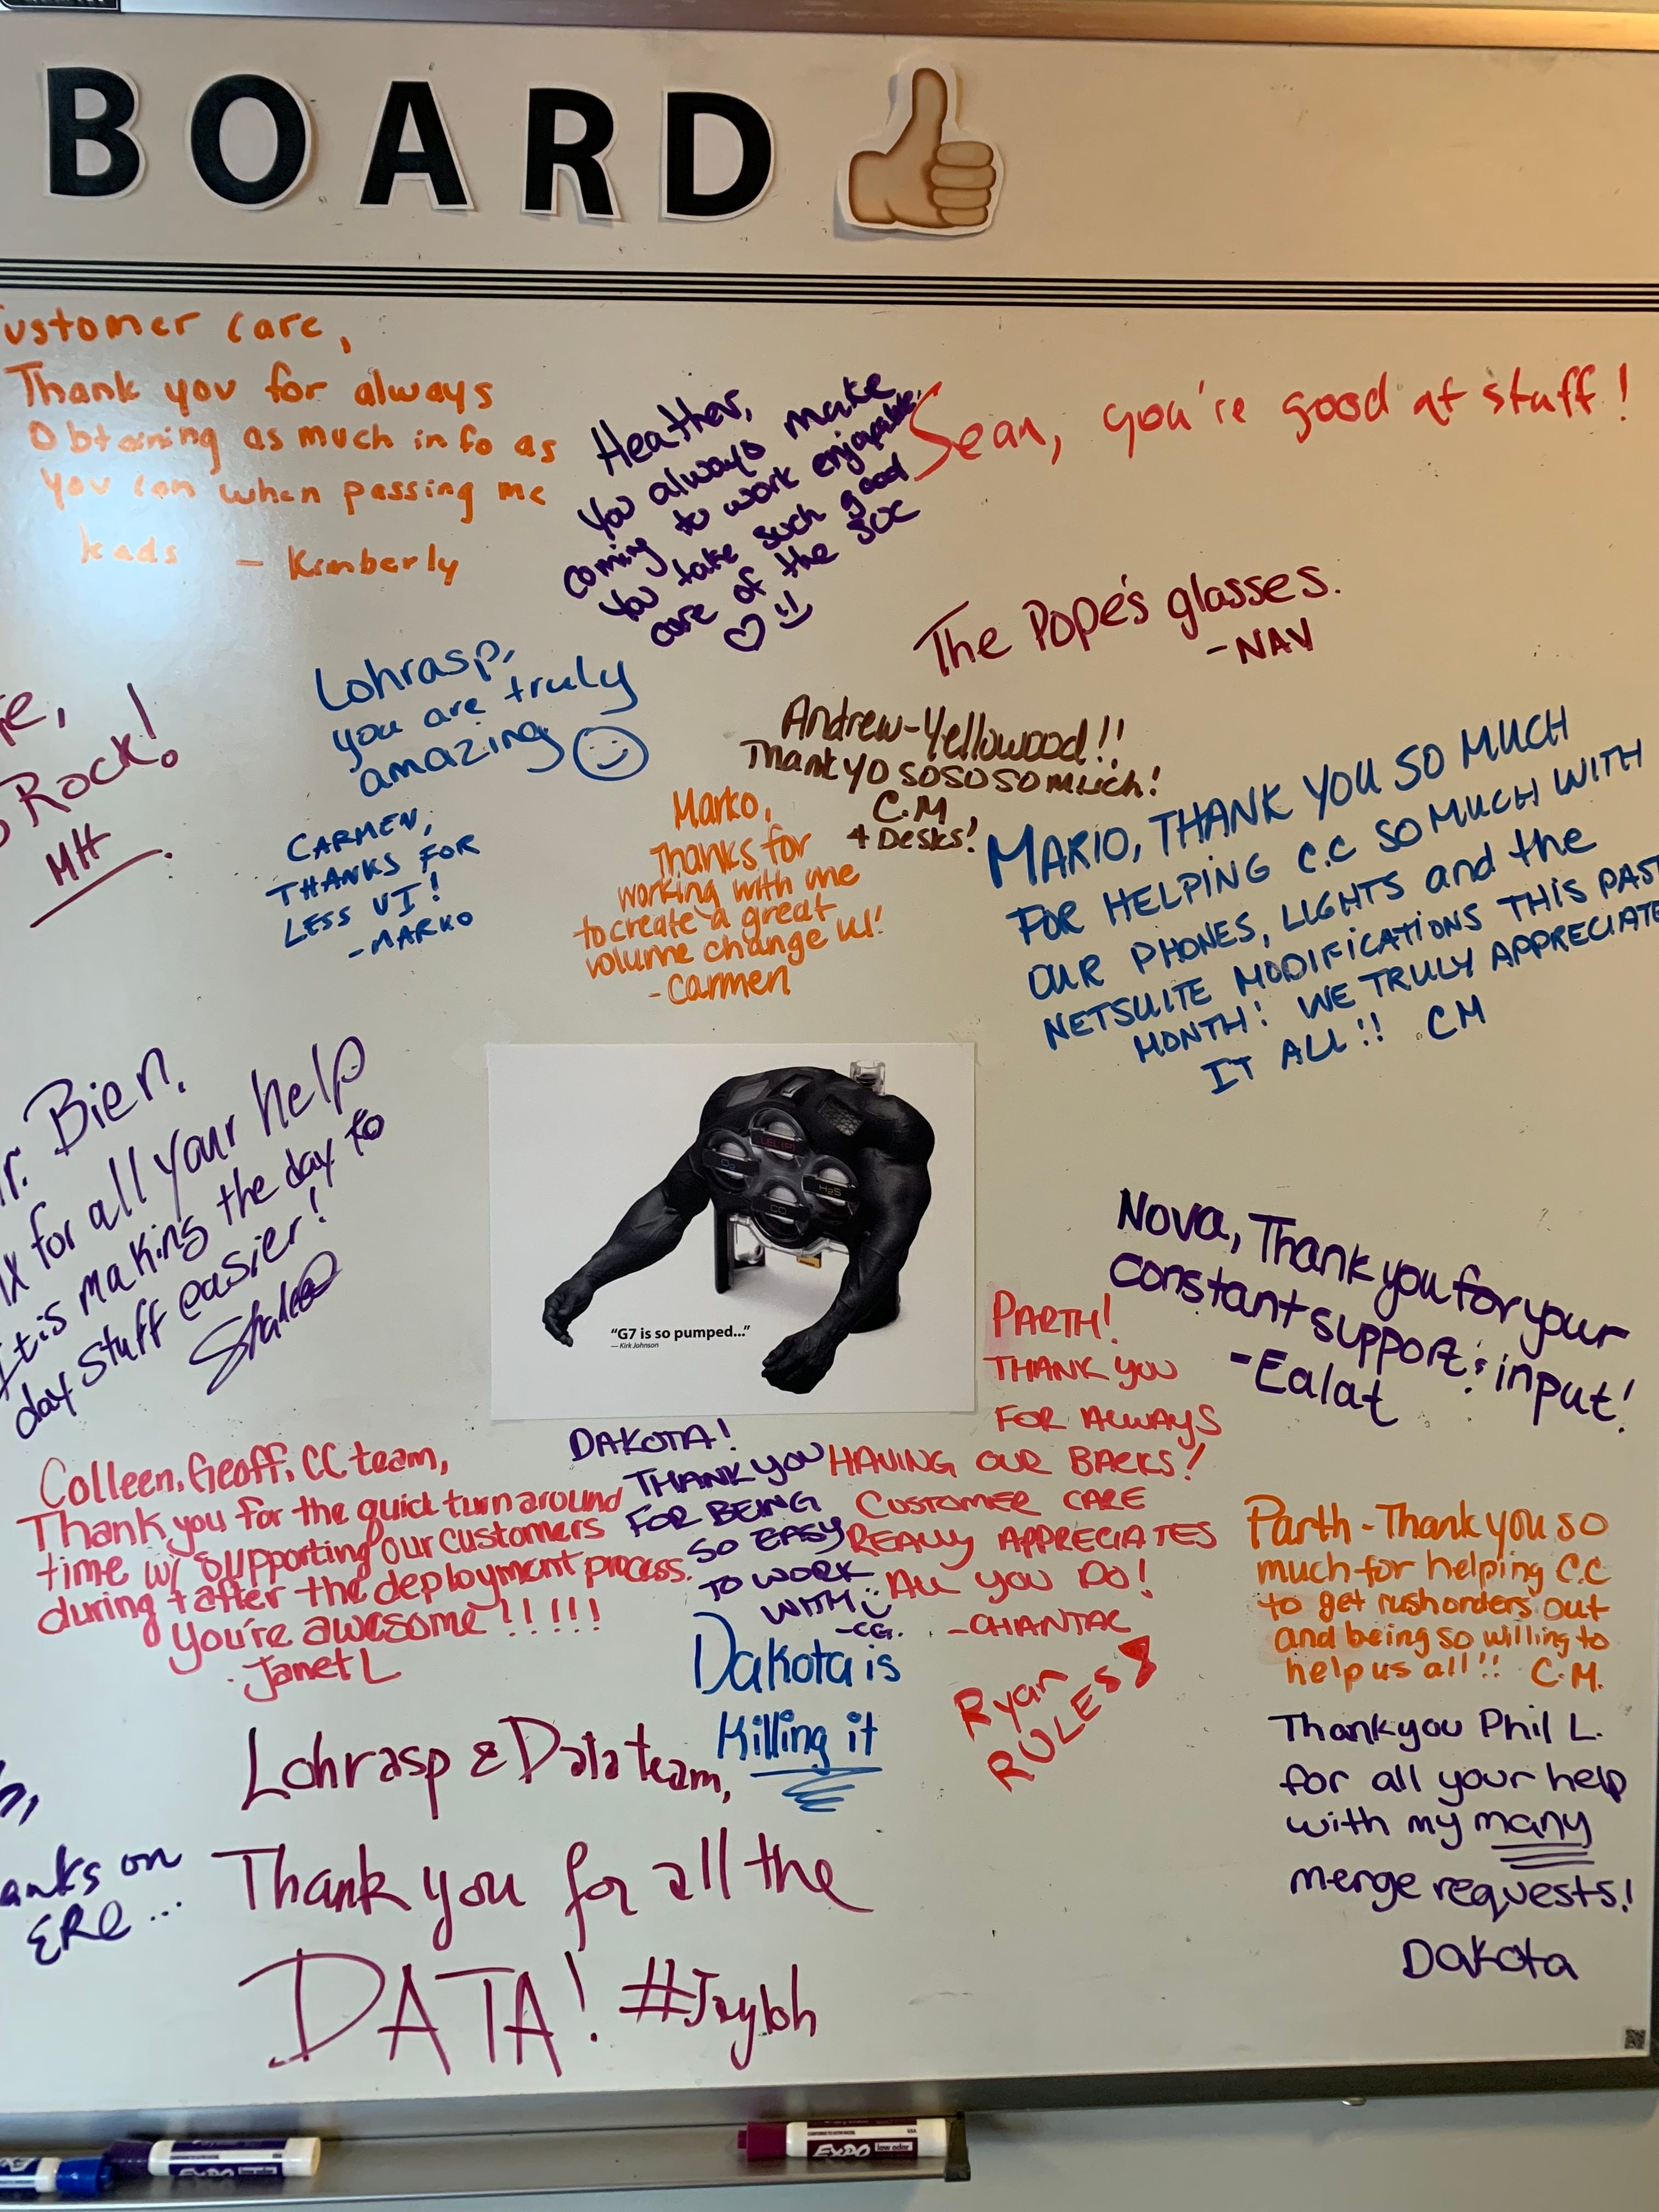 BOARD
Customer care,
Thank you for always
Obtaining as much info as
you can when passing me
leads - Kimberly
Heather,
You always make
coming to work enjoyable.
You take such good
care of the SOC
Sean, you're good at stuff!
The Pope's glasses.
-NAV
Rock!
MH
Lohrasp,
you are truly
amazing
Andrew-Yellowood!!
Thank yo so so so much!
C.M
4 Desks!
CARMEN,
THANKS FOR
LESS UI!
-MARKO
Marko,
Thanks for
working with me
to create a great
volume change UI!
-Carmen
MARIO, THANK YOU SO MUCH
FOR HELPING C.C SO MUCH WITH
OUR PHONES, LIGHTS and the
NETSUITE MODIFICATIONS THIS PAST
MONTH! WE TRULY APPRECIATE
IT ALL!! CM
Bien.
for all your help
It is making the day to
day stuff easier!
LEL(P)
O2
H2S
CO
"G7 is so pumped..."
— Kirk Johnson
Nova, Thank you for your
constant support & input!
-Ealat
PARTH!
THANK YOU
FOR ALWAYS
HAVING OUR BACKS!
CUSTOMER CARE
REALLY APPRECIATES
ALL YOU DO!
-CHANTAL
DAKOTA!
THANK YOU
FOR BEING
SO EASY
TO WORK
WITH
-CG.
Colleen, Geoff, CC team,
Thank you for the quick turn around
time w/ supporting our customers
during + after the deployment process.
You're awesome!!!!!
- Janet L
Parth - Thank you so
much for helping C.C
to get rush orders out
and being so willing to
help us all!! C.M.
Dakota is
Killing it
Ryan
RULES
Lohrasp & Data team,
Thank you for all the
DATA! #Jayloh
Thank you Phil L.
for all your help
with my many
merge requests!
Dakota
anks on
ERC...
EXPO low odor
USA
EXPO